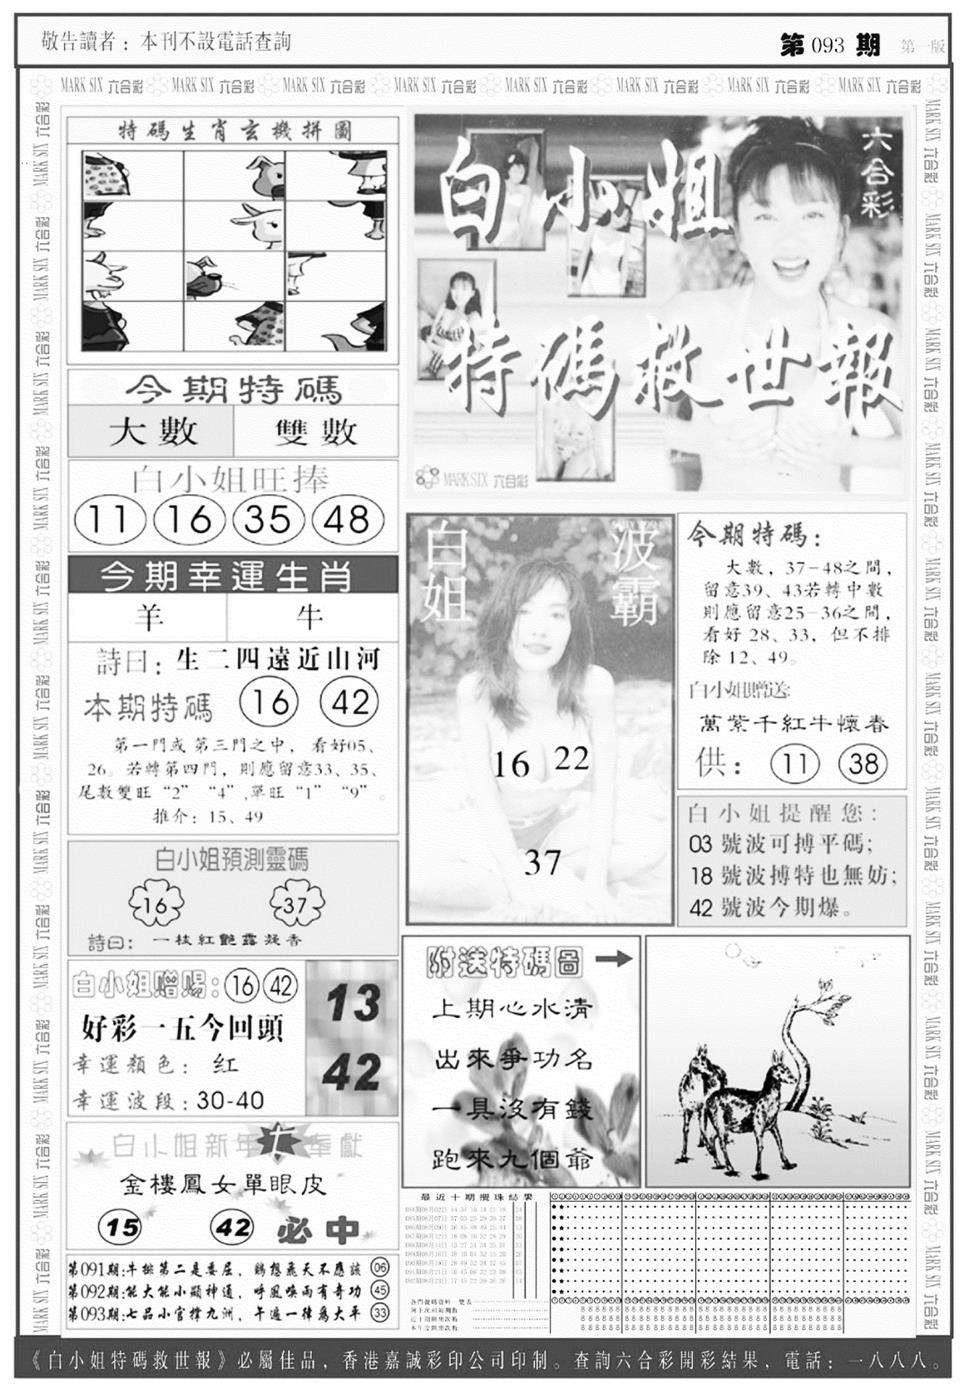 敬告讀者：本刊不設電話查詢
第093期 第一版
MARK SIX 六合彩 MARK SIX 六合彩 MARK SIX 六合彩 MARK SIX 六合彩 MARK SIX 六合彩 MARK SIX 六合彩 MARK SIX 六合彩 MARK SIX 六合彩
特碼生肖玄機拼圖
六合彩
白小姐
特碼救世報
MARK SIX 六合彩
今期特碼
大數 雙數
白小姐旺捧
11 16 35 48
今期幸運生肖
羊 牛
詩曰：生二四遠近山河
本期特碼 16 42
第一門或第三門之中，看好05、
26。若轉第四門，則應留意33、35、
尾數雙旺“2” “4”,單旺“1” “9”。
推介：15、49
白小姐預測靈碼
16 37
詩曰：一枝紅艷露凝香
白小姐贈賜：16 42
好彩一五今回頭
幸運顏色：红
幸運波段：30-40
13
42
白小姐新年 奉獻
金樓鳳女單眼皮
15 42 必中
第091期:牛排第二是委屈，鷄想飛天不應該 06
第092期:能大能小顯神通，呼風喚雨有奇功 45
第093期:七品小官撑九洲，午過一律爲大平 33
白姐
波霸
16 22
37
今期特碼：
大數，37-48之間，
留意39、43若轉中數
則應留意25-36之間，
看好28、33，但不排
除12、49。
白小姐贈送:
萬紫千紅牛懷春
供：11 38
白小姐提醒您：
03號波可搏平碼；
18號波搏特也無妨；
42號波今期爆。
附送特碼圖
上期心水清
出來爭功名
一具沒有錢
跑來九個爺
最近十期攪珠結果
《白小姐特碼救世報》必屬佳品，香港嘉誠彩印公司印制。查詢六合彩開彩結果，電話：一八八八。